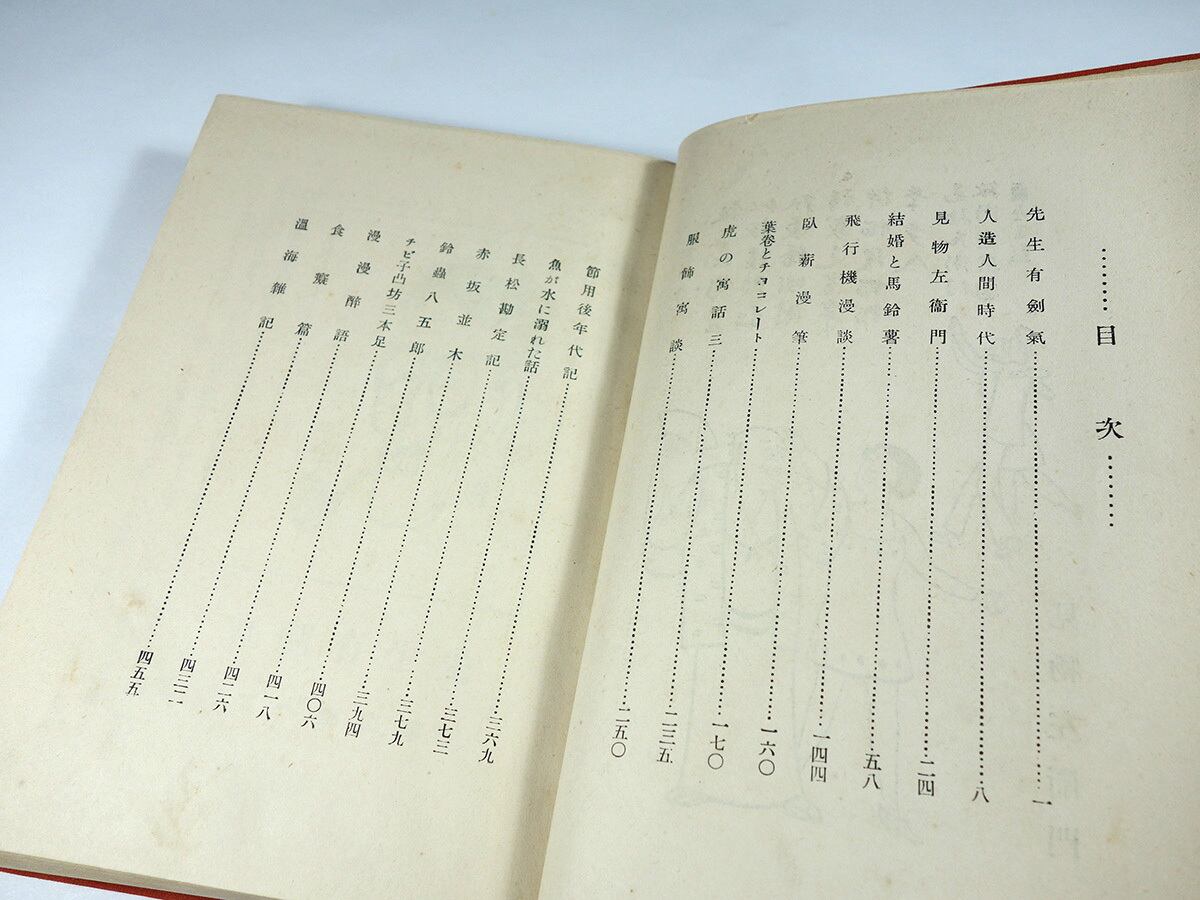 ………目次………
先生有劍氣………一
人造人間時代………八
見物左衞門………二四
結婚と馬鈴薯………五八
飛行機漫談………一四四
臥薪漫筆………一六〇
葉卷とチヨコレート………一七〇
虎の寓話三………二三五
服飾寓談………二五〇
節用後年代記………三六九
魚が水に溺れた話………三七三
長松勘定記………三七九
赤坂並木………三九四
鈴蟲八五郎………四〇六
チビ子凸坊三本足………四一八
漫漫醉語………四二六
食癡篇………四三二
溫海雜記………四五五